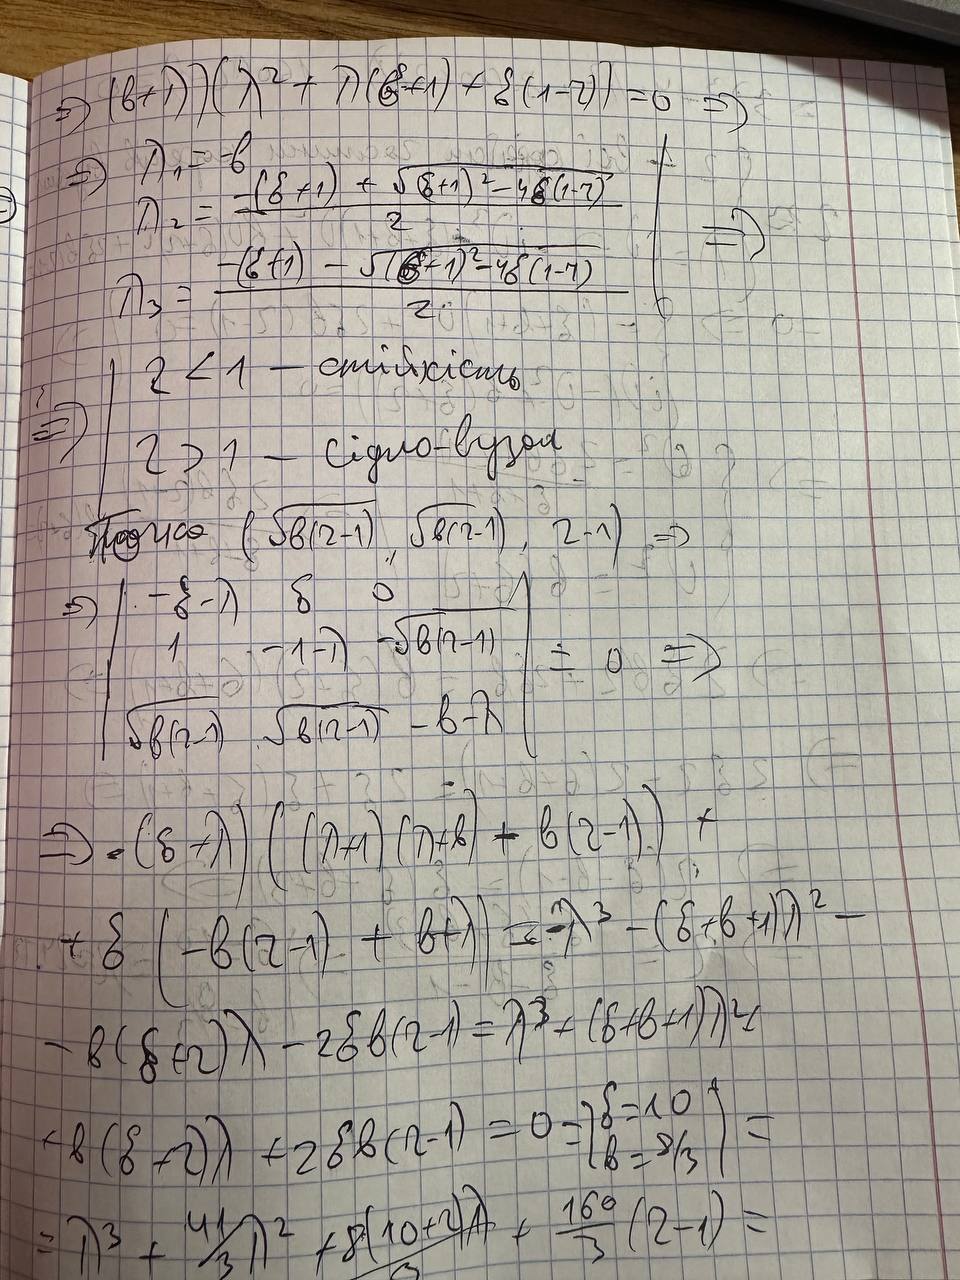 ⇒ (b+λ)(λ² + λ(δ+1) + δ(1-r)) = 0 ⇒
⇒ λ₁ = -b
λ₂ = (-(δ+1) + √((δ+1)² - 4δ(1-r))) / 2 ⇒
λ₃ = (-(δ+1) - √((δ+1)² - 4δ(1-r))) / 2
? ⇒ r < 1 — стійкість
r > 1 — сідло-вузол
Точка (√b(r-1), √b(r-1), r-1) ⇒
⇒ | -δ-λ δ 0
1 -1-λ -√b(r-1) | = 0 ⇒
√b(r-1) √b(r-1) -b-λ
⇒ -(δ+λ)((λ+1)(λ+b) + b(r-1)) +
+ δ(-b(r-1) + b+λ) = -λ³ - (δ+b+1)λ² -
- b(δ+r)λ - 2δb(r-1) = λ³ + (δ+b+1)λ² +
+ b(δ+r)λ + 2δb(r-1) = 0 = | δ=10
b = 8/3 | =
= λ³ + 41/3 λ² + 8(10+r)λ/3 + 160/3 (r-1) =